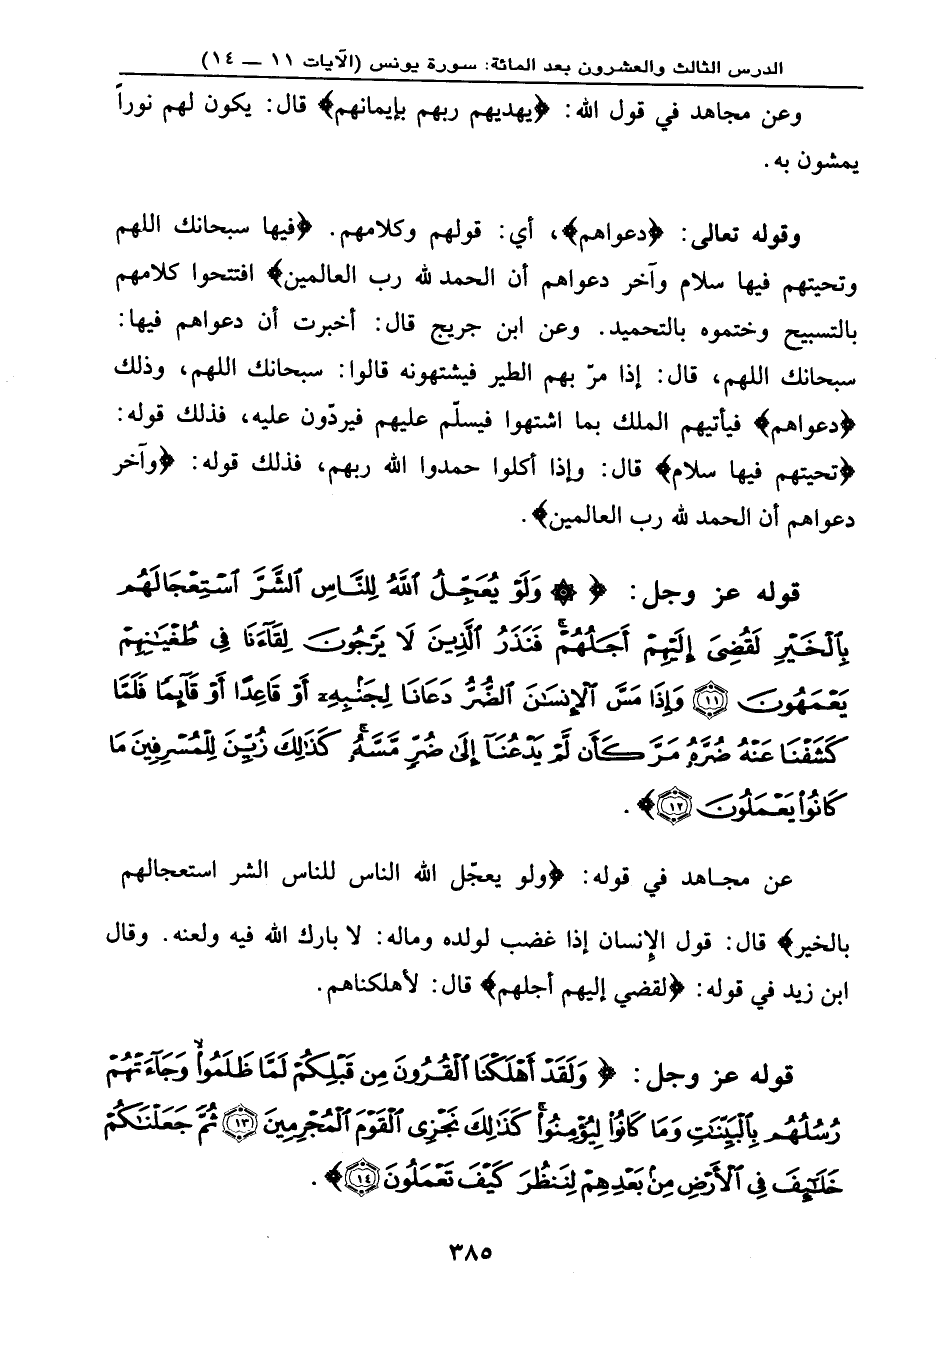 الدرس الثالث والعشرون بعد المائة: سورة يونس (الآيات ١١ — ١٤)
وعن مجاهد في قول الله: ﴿يهديهم ربهم بإيمانهم﴾ قال: يكون لهم نوراً
يمشون به.
وقوله تعالى: ﴿دعواهم﴾، أي: قولهم وكلامهم. ﴿فيها سبحانك اللهم
وتحيتهم فيها سلام وآخر دعواهم أن الحمد لله رب العالمين﴾ افتتحوا كلامهم
بالتسبيح وختموه بالتحميد. وعن ابن جريج قال: أخبرت أن دعواهم فيها:
سبحانك اللهم، قال: إذا مرّ بهم الطير فيشتهونه قالوا: سبحانك اللهم، وذلك
﴿دعواهم﴾ فيأتيهم الملك بما اشتهوا فيسلّم عليهم فيردّون عليه، فذلك قوله:
﴿تحيتهم فيها سلام﴾ قال: وإذا أكلوا حمدوا الله ربهم، فذلك قوله: ﴿وآخر
دعواهم أن الحمد لله رب العالمين﴾.
قوله عز وجل: ﴿ ۞ وَلَوْ يُعَجِّلُ ٱللَّهُ لِلنَّاسِ ٱلشَّرَّ ٱسْتِعْجَالَهُم
بِٱلْخَيْرِ لَقُضِىَ إِلَيْهِمْ أَجَلُهُمْ ۖ فَنَذَرُ ٱلَّذِينَ لَا يَرْجُونَ لِقَآءَنَا فِى طُغْيَـٰنِهِمْ
يَعْمَهُونَ ﴿١١﴾ وَإِذَا مَسَّ ٱلْإِنسَـٰنَ ٱلضُّرُّ دَعَانَا لِجَنۢبِهِۦٓ أَوْ قَاعِدًا أَوْ قَآئِمًا فَلَمَّا
كَشَفْنَا عَنْهُ ضُرَّهُۥ مَرَّ كَأَن لَّمْ يَدْعُنَآ إِلَىٰ ضُرٍّ مَّسَّهُۥ ۚ كَذَٰلِكَ زُيِّنَ لِلْمُسْرِفِينَ مَا
كَانُوا۟ يَعْمَلُونَ ﴿١٢﴾ ﴾.
عن مجاهد في قوله: ﴿ولو يعجّل الله الناس للناس الشر استعجالهم
بالخير﴾ قال: قول الإنسان إذا غضب لولده وماله: لا بارك الله فيه ولعنه. وقال
ابن زيد في قوله: ﴿لقضي إليهم أجلهم﴾ قال: لأهلكناهم.
قوله عز وجل: ﴿ وَلَقَدْ أَهْلَكْنَا ٱلْقُرُونَ مِن قَبْلِكُمْ لَمَّا ظَلَمُوا۟ ۙ وَجَآءَتْهُمْ
رُسُلُهُم بِٱلْبَيِّنَـٰتِ وَمَا كَانُوا۟ لِيُؤْمِنُوا۟ ۚ كَذَٰلِكَ نَجْزِى ٱلْقَوْمَ ٱلْمُجْرِمِينَ ﴿١٣﴾ ثُمَّ جَعَلْنَـٰكُمْ
خَلَـٰٓئِفَ فِى ٱلْأَرْضِ مِنۢ بَعْدِهِمْ لِنَنظُرَ كَيْفَ تَعْمَلُونَ ﴿١٤﴾ ﴾.
٣٨٥